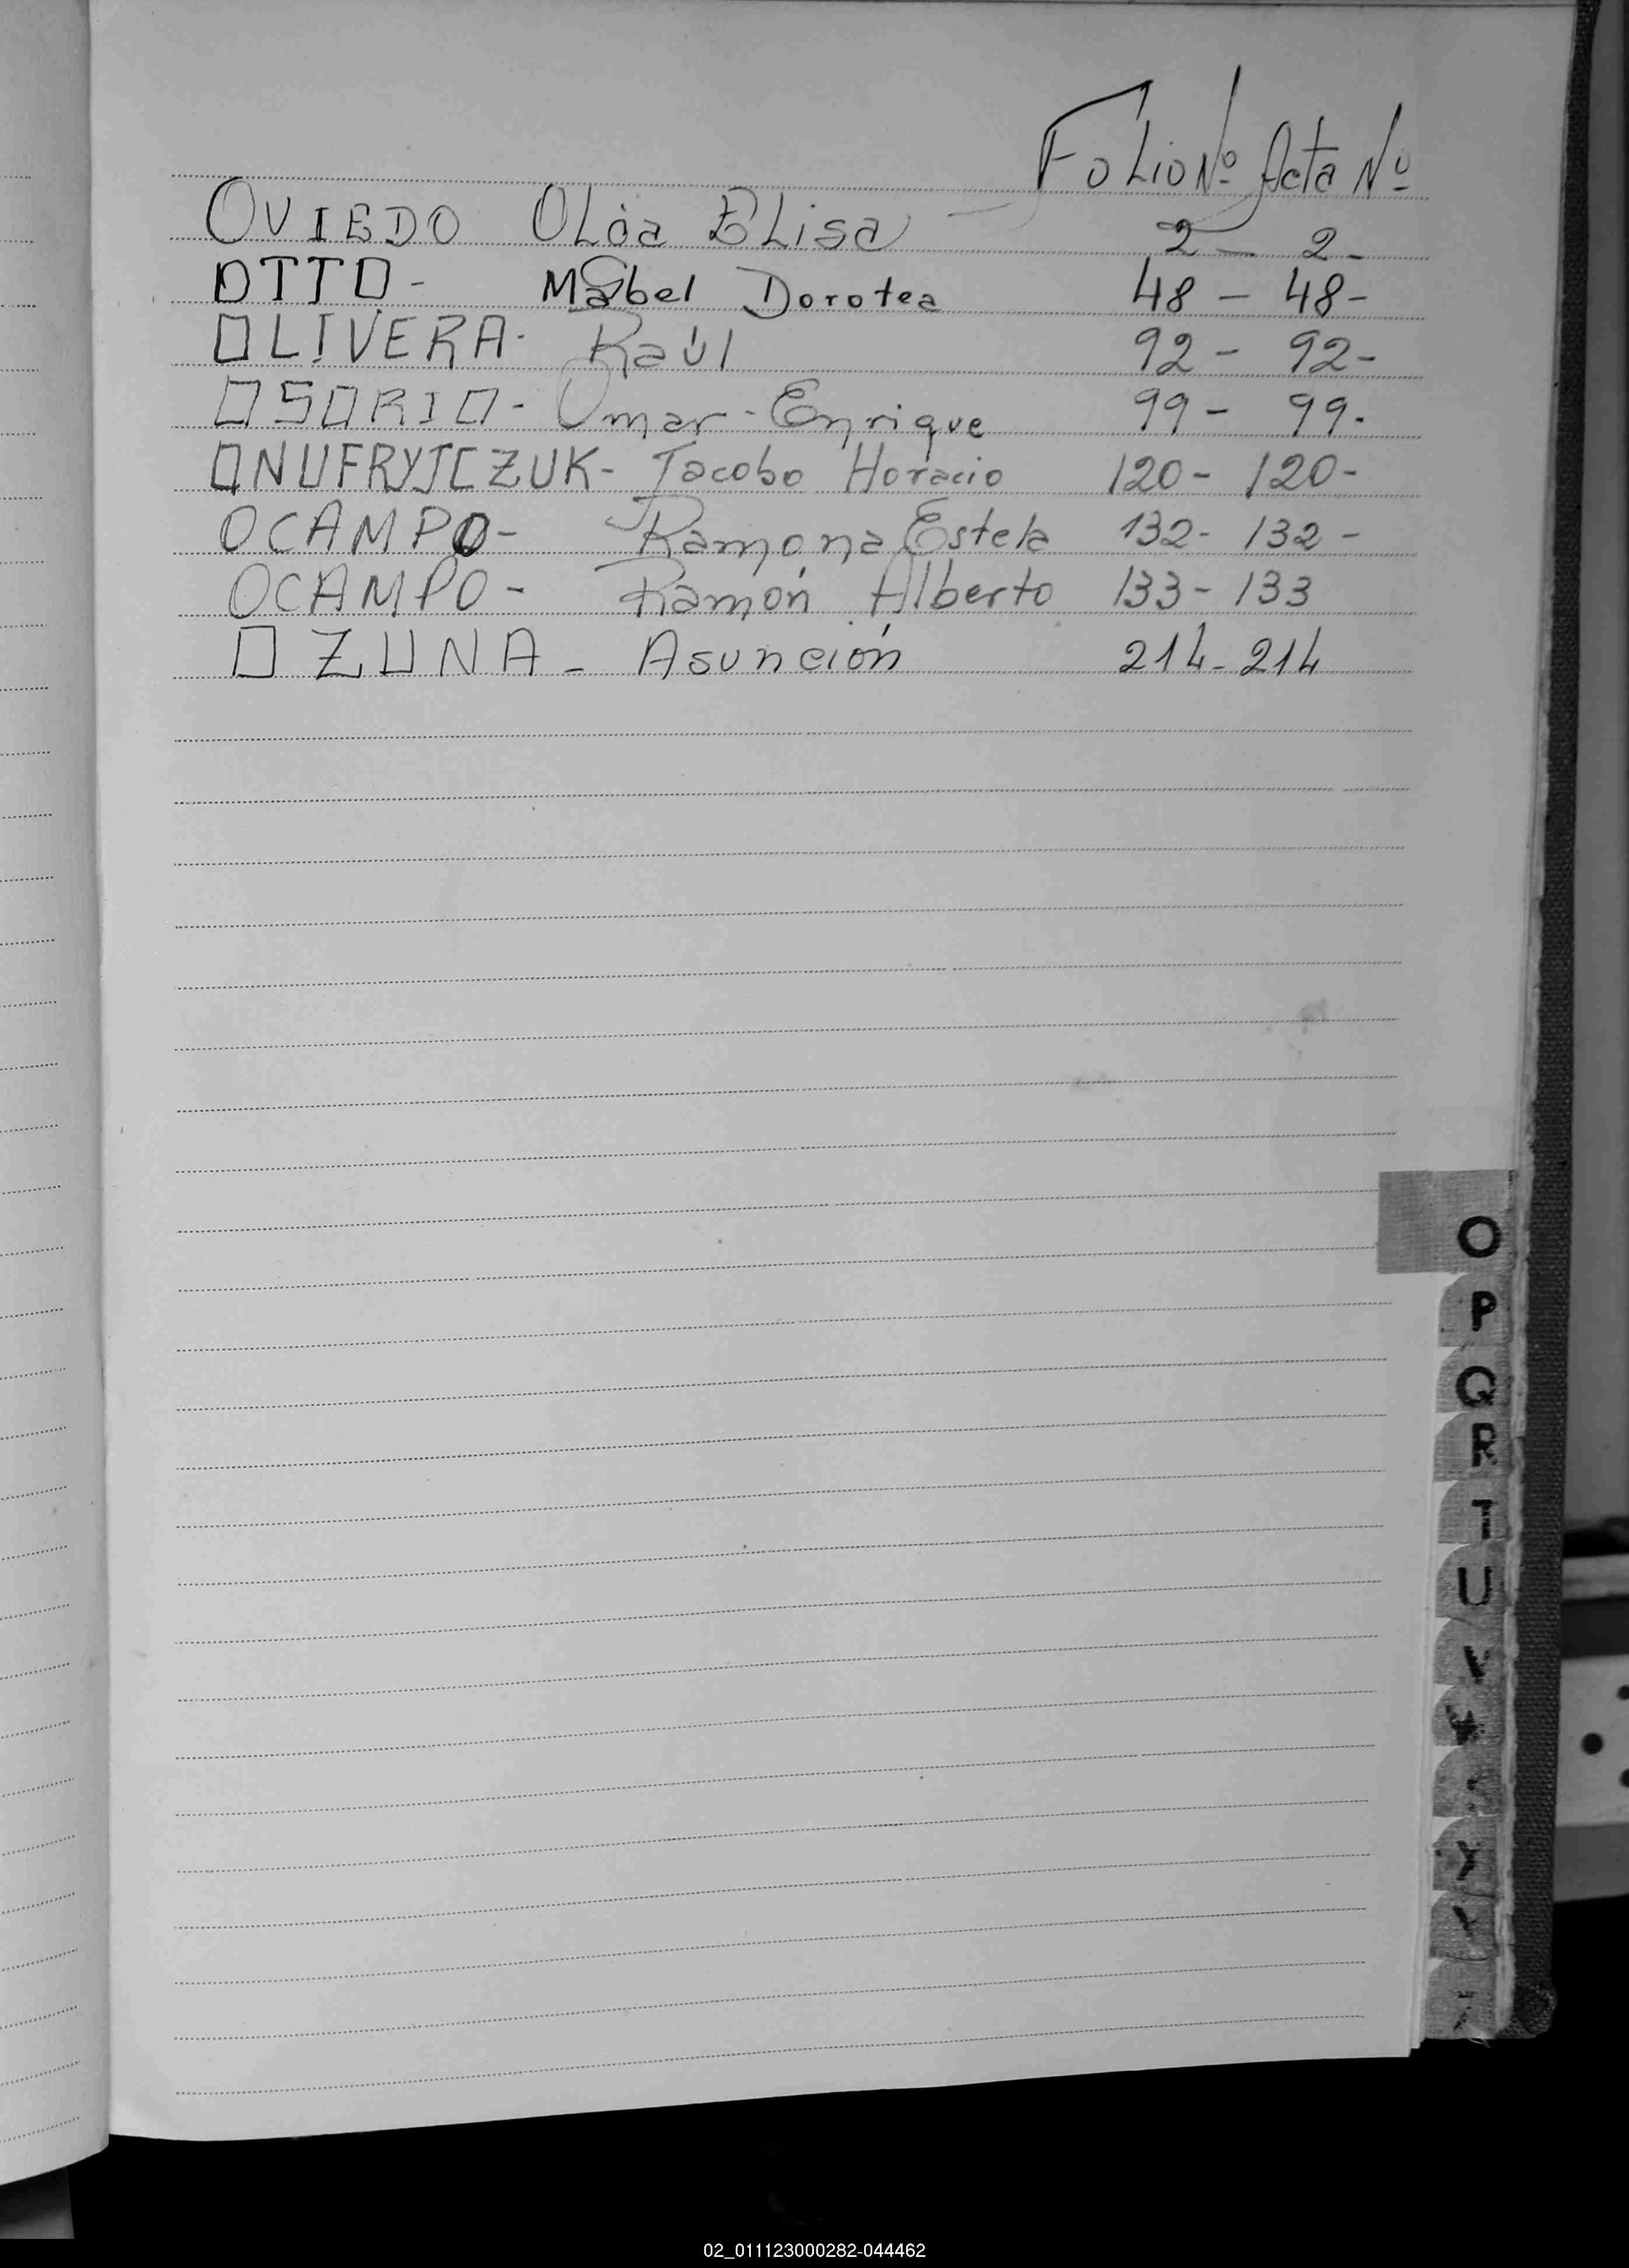 Folio Nº Acta Nº
OVIEDO Olga Elisa - 2 - 2 -
OTTO - Mabel Dorotea 48 - 48 -
OLIVERA - Raúl 92 - 92 -
OSORIO - Omar - Enrique 99 - 99 -
ONUFRYJCZUK - Jacobo Horacio 120 - 120 -
OCAMPO - Ramona Estela 132 - 132 -
OCAMPO - Ramón Alberto 133 - 133
OZUNA - Asunción 214 - 214
O
P
Q
R
T
U
V
Y
02_011123000282-044462